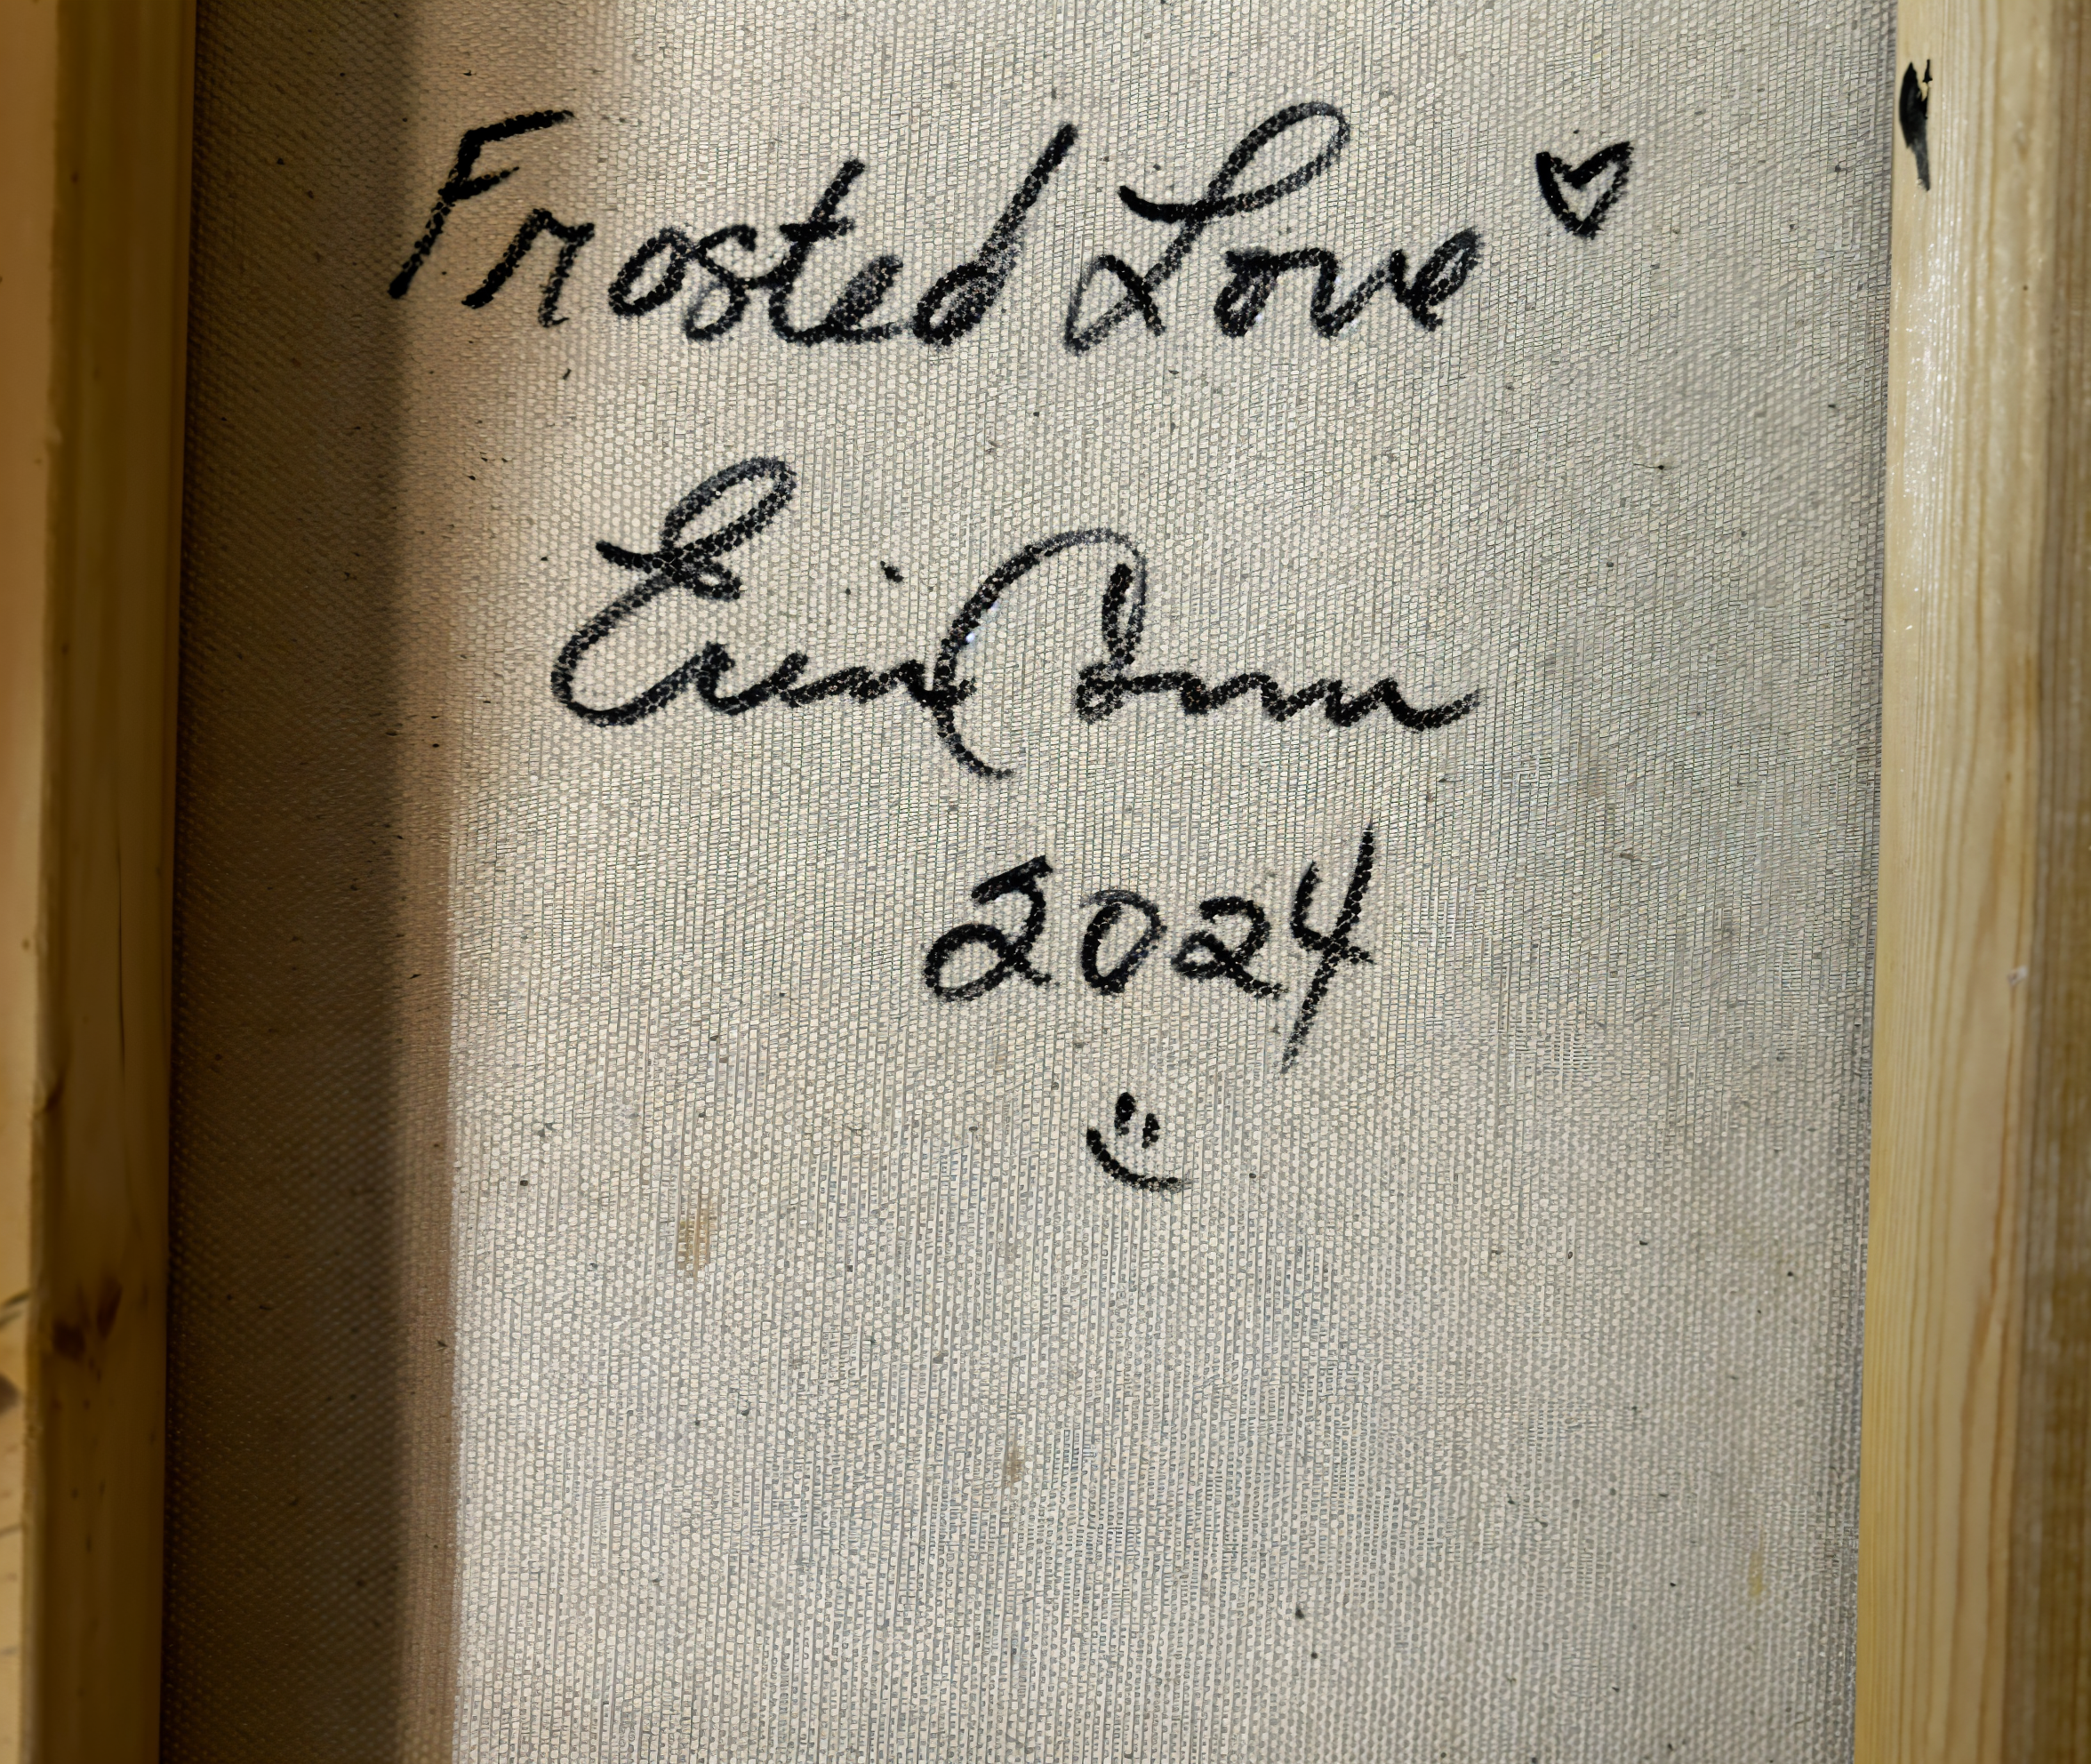 Frosted Love ♡
Erin
2024